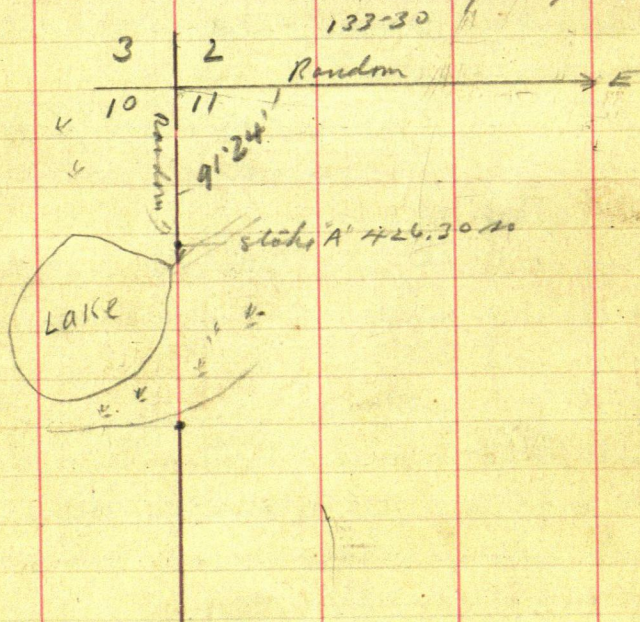 133-30
3 2
Random
E
10 11
Random
91°24'
stake "A" 426.30 so
Lake